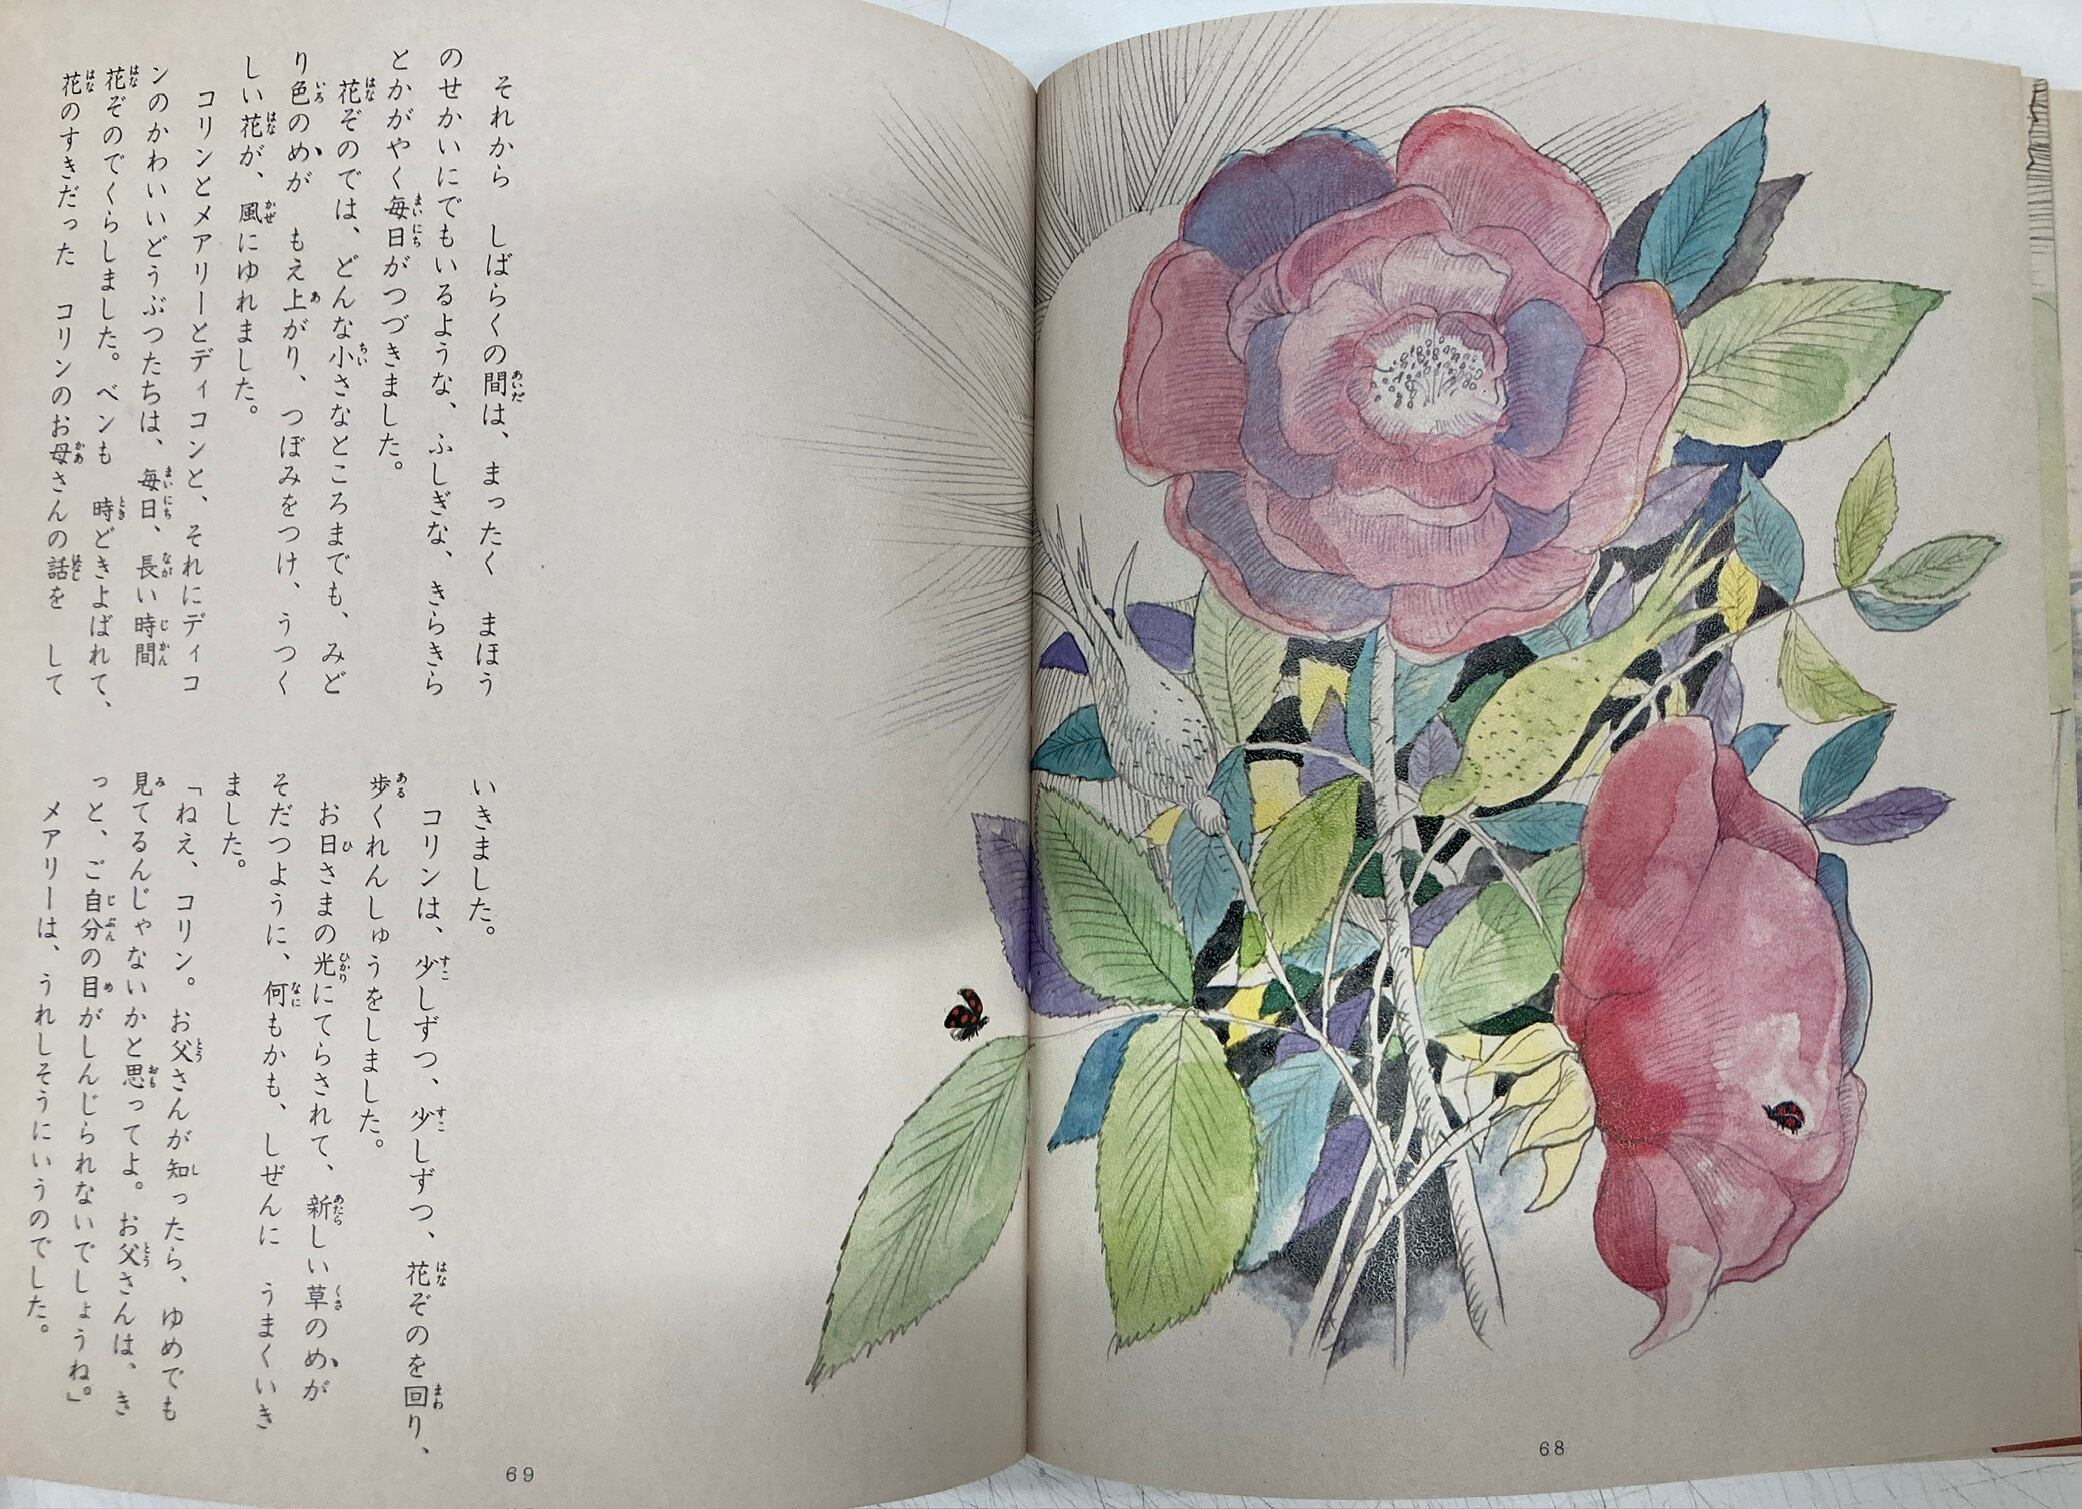 それから　しばらくの間は、まったく　まほう
のせかいにでもいるような、ふしぎな、きらきら
とかがやく毎日がつづきました。
花ぞのでは、どんな小さなところまでも、みど
り色のめが　もえ上がり、つぼみをつけ、うつく
しい花が、風にゆれました。
コリンとメアリーとディコンと、それにディコ
ンのかわいいどうぶつたちは、毎日、長い時間
花ぞのでくらしました。ベンも　時どきよばれて、
花のすきだった　コリンのお母さんの話を　して
いきました。
コリンは、少しずつ、少しずつ、花ぞのを回り、
歩くれんしゅうをしました。
お日さまの光にてらされて、新しい草のめが
そだつように、何もかも、しぜんに　うまくいき
ました。
「ねえ、コリン。お父さんが知ったら、ゆめでも
見てるんじゃないかと思ってよ。お父さんは、き
っと、ご自分の目がしんじられないでしょうね。」
メアリーは、うれしそうにいうのでした。
69
68